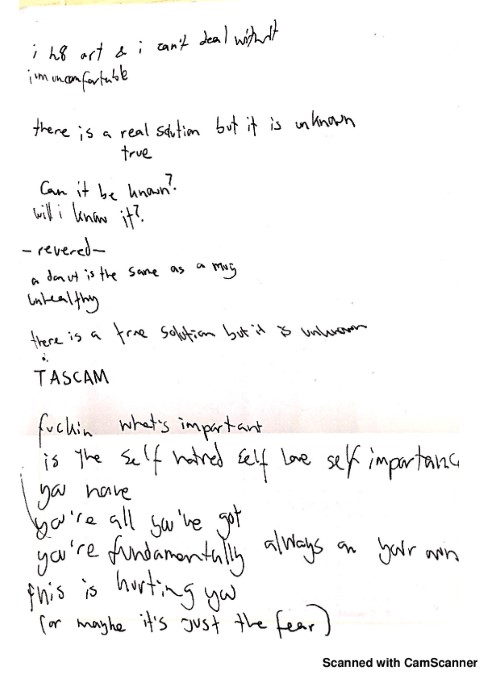 i h8 art & i can't deal with it
i'm uncomfortable
there is a real solution but it is unknown
true
Can it be known?
will i know it?
- revered -
a donut is the same as a mug
unhealthy
there is a true solution but it is unknown
TASCAM
fuckin what's important
is the self hatred self love self importance
you have
you're all you've got
you're fundamentally always on your own
this is hurting you
(or maybe it's just the fear)
Scanned with CamScanner